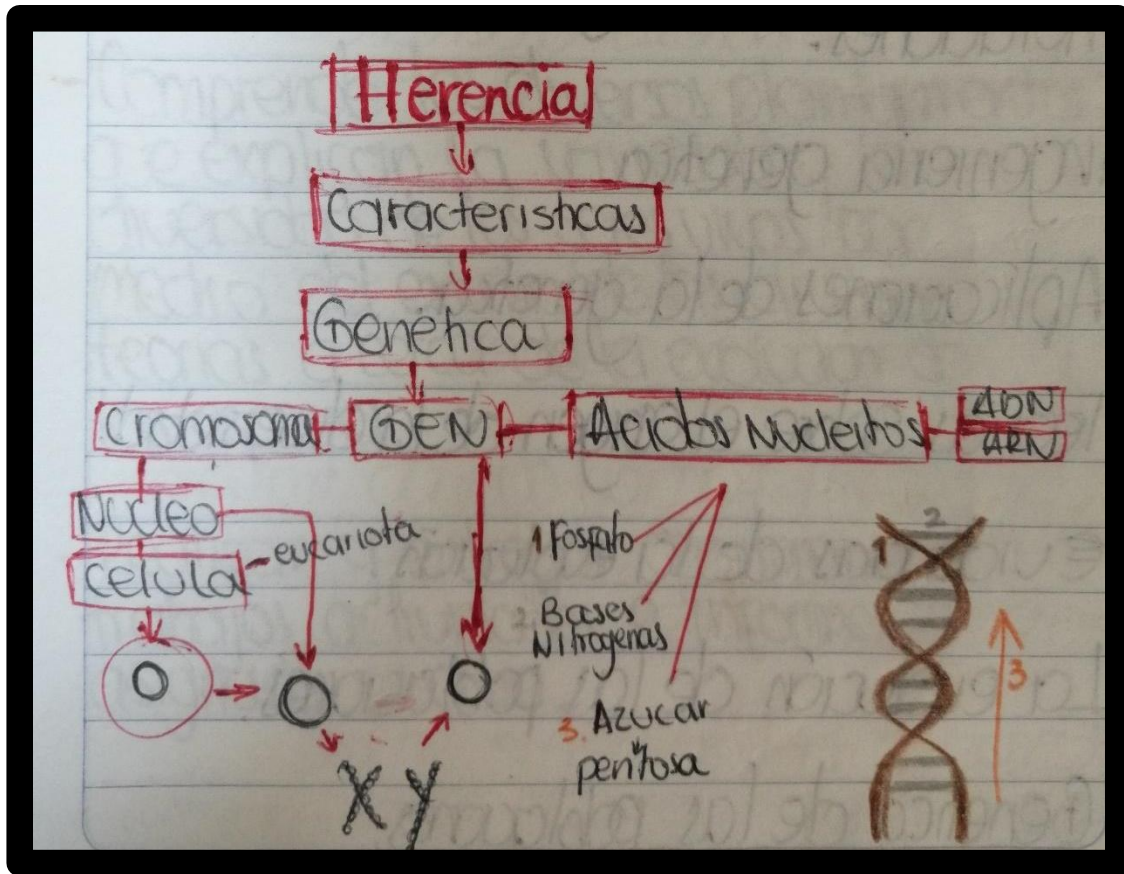 Herencia
Caracteristicas
Genetica
Cromosoma GEN Acidos Nucleitos ADN
ARN
Nucleo
celula eucariota
1 Fosfato
2. Bases
Nitrogenas
3. Azucar
pentosa
X Y
1
2
3